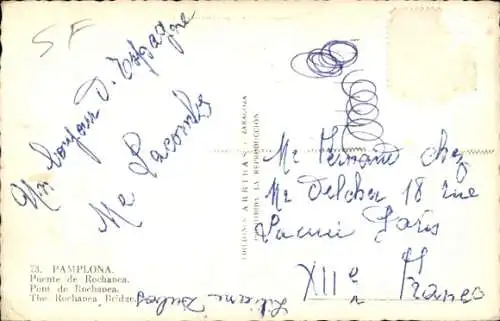 5 F
Un bonjour d'Espagne
Me Lacombe
73. PAMPLONA.
Puente de Rochapea.
Pont de Rochapea.
The Rochapea Bridge.
EDICIONES ARRIBAS - ZARAGOZA
PROHIBIDA LA REPRODUCCIÓN
Me Fernand chez
Me Delcher 18 rue
Paris
XII e France
Liliane Dubos